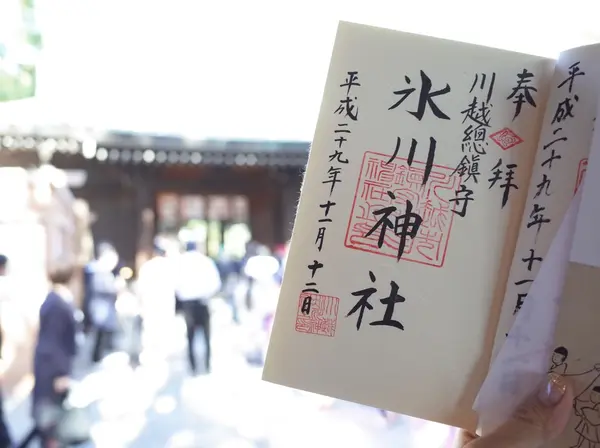 奉拝
川越總鎮守
氷川神社
平成二十九年十一月十二日
平成二十九年十一月